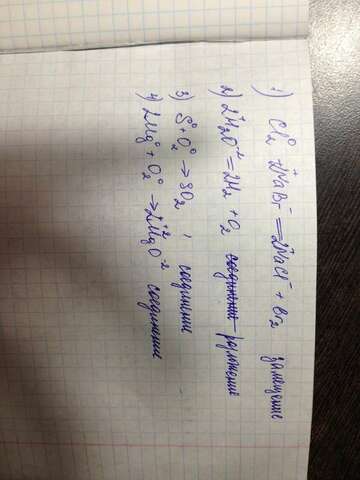 1) Cl₂⁰ + 2Na⁺Br⁻ = 2Na⁺Cl⁻ + Br₂ замещение
2) 2H₂⁺O⁻² = 2H₂ + O₂ ~~соединение~~ разложение
3) S⁰ + O₂⁰ → SO₂, соединение
4) 2Mg⁰ + O₂⁰ → 2Mg⁺²O⁻² соединение